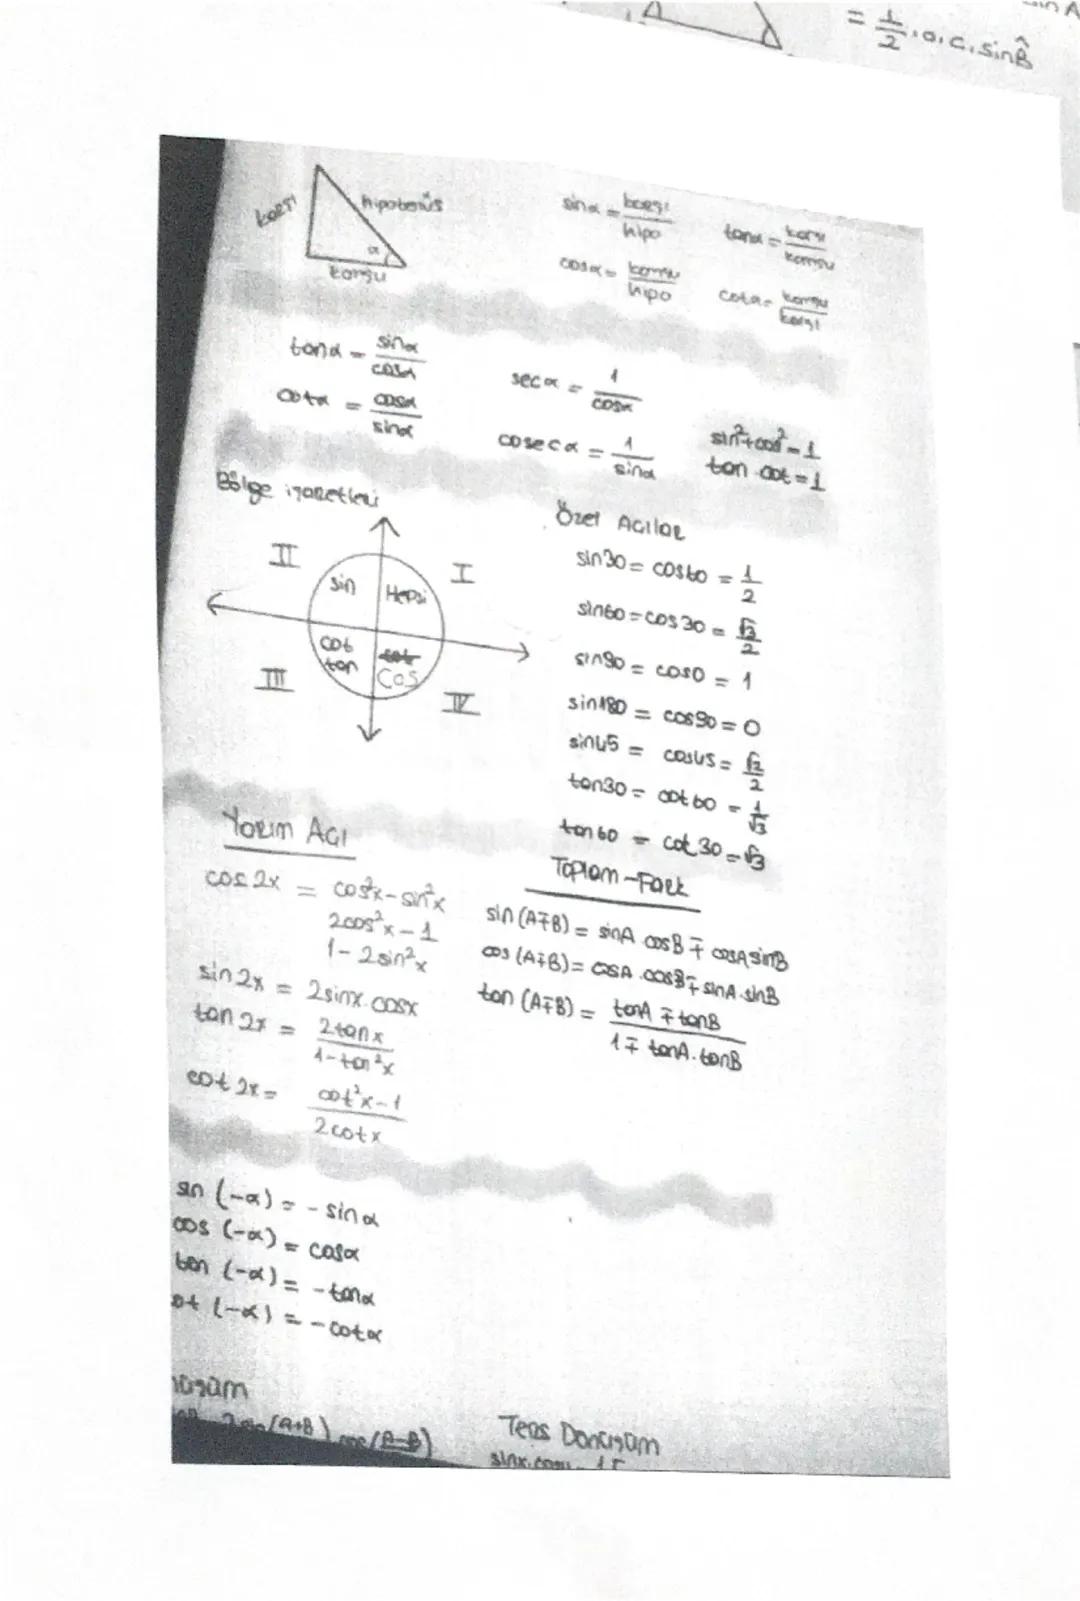 = 1/2 . a . c . sinB̂
karşı
hipotenüs
α
komşu
sinα = karşı/hipo
tanα = karşı/komşu
cosα = komşu/hipo
cotα = komşu/karşı
tanα = sinα/cosα
secα = 1/cosα
cotα = cosα/sinα
cosecα = 1/sinα
sin²+cos²=1
tan.cot=1
Bölge işaretleri
II
I
sin
Hepsi
cot
tan
Cos
III
IV
Özel Açılar
sin30 = cos60 = 1/2
sin60 = cos30 = √3/2
sin90 = cos0 = 1
sin180 = cos90 = 0
sin45 = cos45 = √2/2
tan30 = cot60 = 1/√3
tan60 = cot30 = √3
Yarım Açı
cos2x = cos²x-sin²x
2cos²x-1
1-2sin²x
sin2x = 2sinx.cosx
tan2x = 2tanx/1-tan²x
cot2x = cot²x-1/2cotx
Toplam-Fark
sin(A∓B) = sinA.cosB ∓ cosAsinB
cos(A∓B) = cosA.cosB ∓ sinA.sinB
tan(A∓B) = tanA ∓ tanB/1∓tanA.tanB
sin(-α) = -sinα
cos(-α) = cosα
tan(-α) = -tanα
ot(-α) = -cotα
Ters Dönüşüm